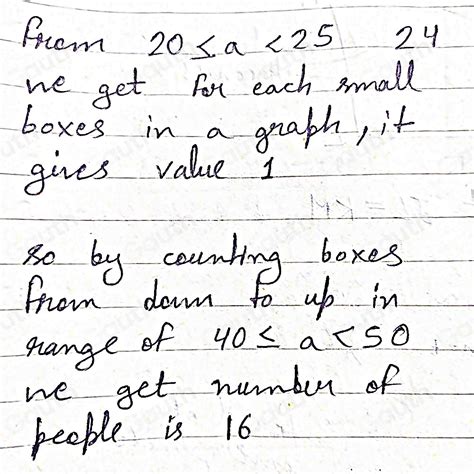 From 20 ≤ a < 25 24
we get for each small
boxes in a graph, it
gives value 1
so by counting boxes
from down to up in
range of 40 ≤ a < 50
we get number of
people is 16